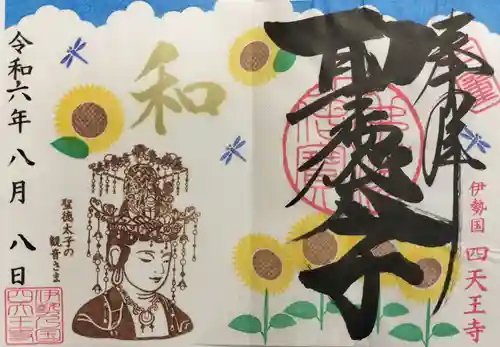 奉拝
聖徳太子
伊勢国 四天王寺
和
聖徳太子の
観音さま
令和六年八月八日